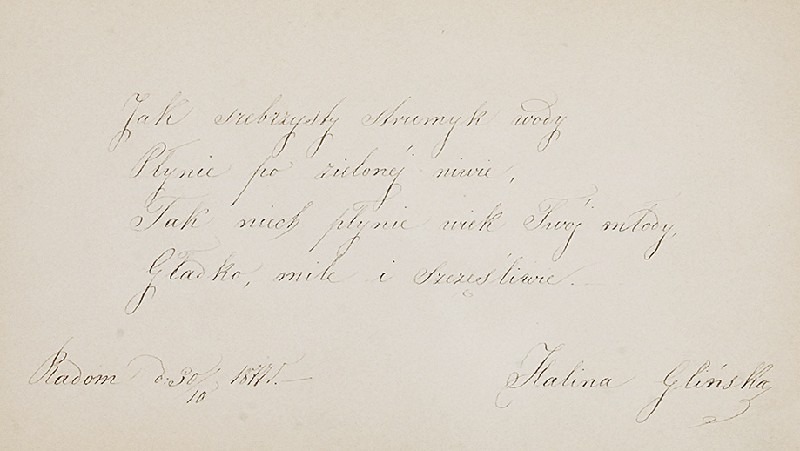 Jak szebrzysty strumyk wody
Płynie po zielonéj niwie,
Tak niech płynie wiek Twój młody,
Gładko, mile i szczęśliwie. —
Radom d. 30/10
Halina Glińska